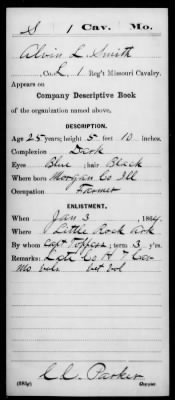 S 1 Cav. Mo.
Alvin L Smith
, Co. L, 1 Reg't Missouri Cavalry.
Appears on
Company Descriptive Book
of the organization named above.
DESCRIPTION.
Age 25 years; height 5 feet 10 inches.
Complexion Dark
Eyes Blue; hair Black
Where born Morgan Co Ill
Occupation Farmer
ENLISTMENT.
When Jan 3, 1864.
Where Little Rock Ark
By whom Capt; term 3 y'rs.
Remarks: Late Co H 7 Cav
Mo vols vet vol
C.C. Parker
(383g) Copyist.